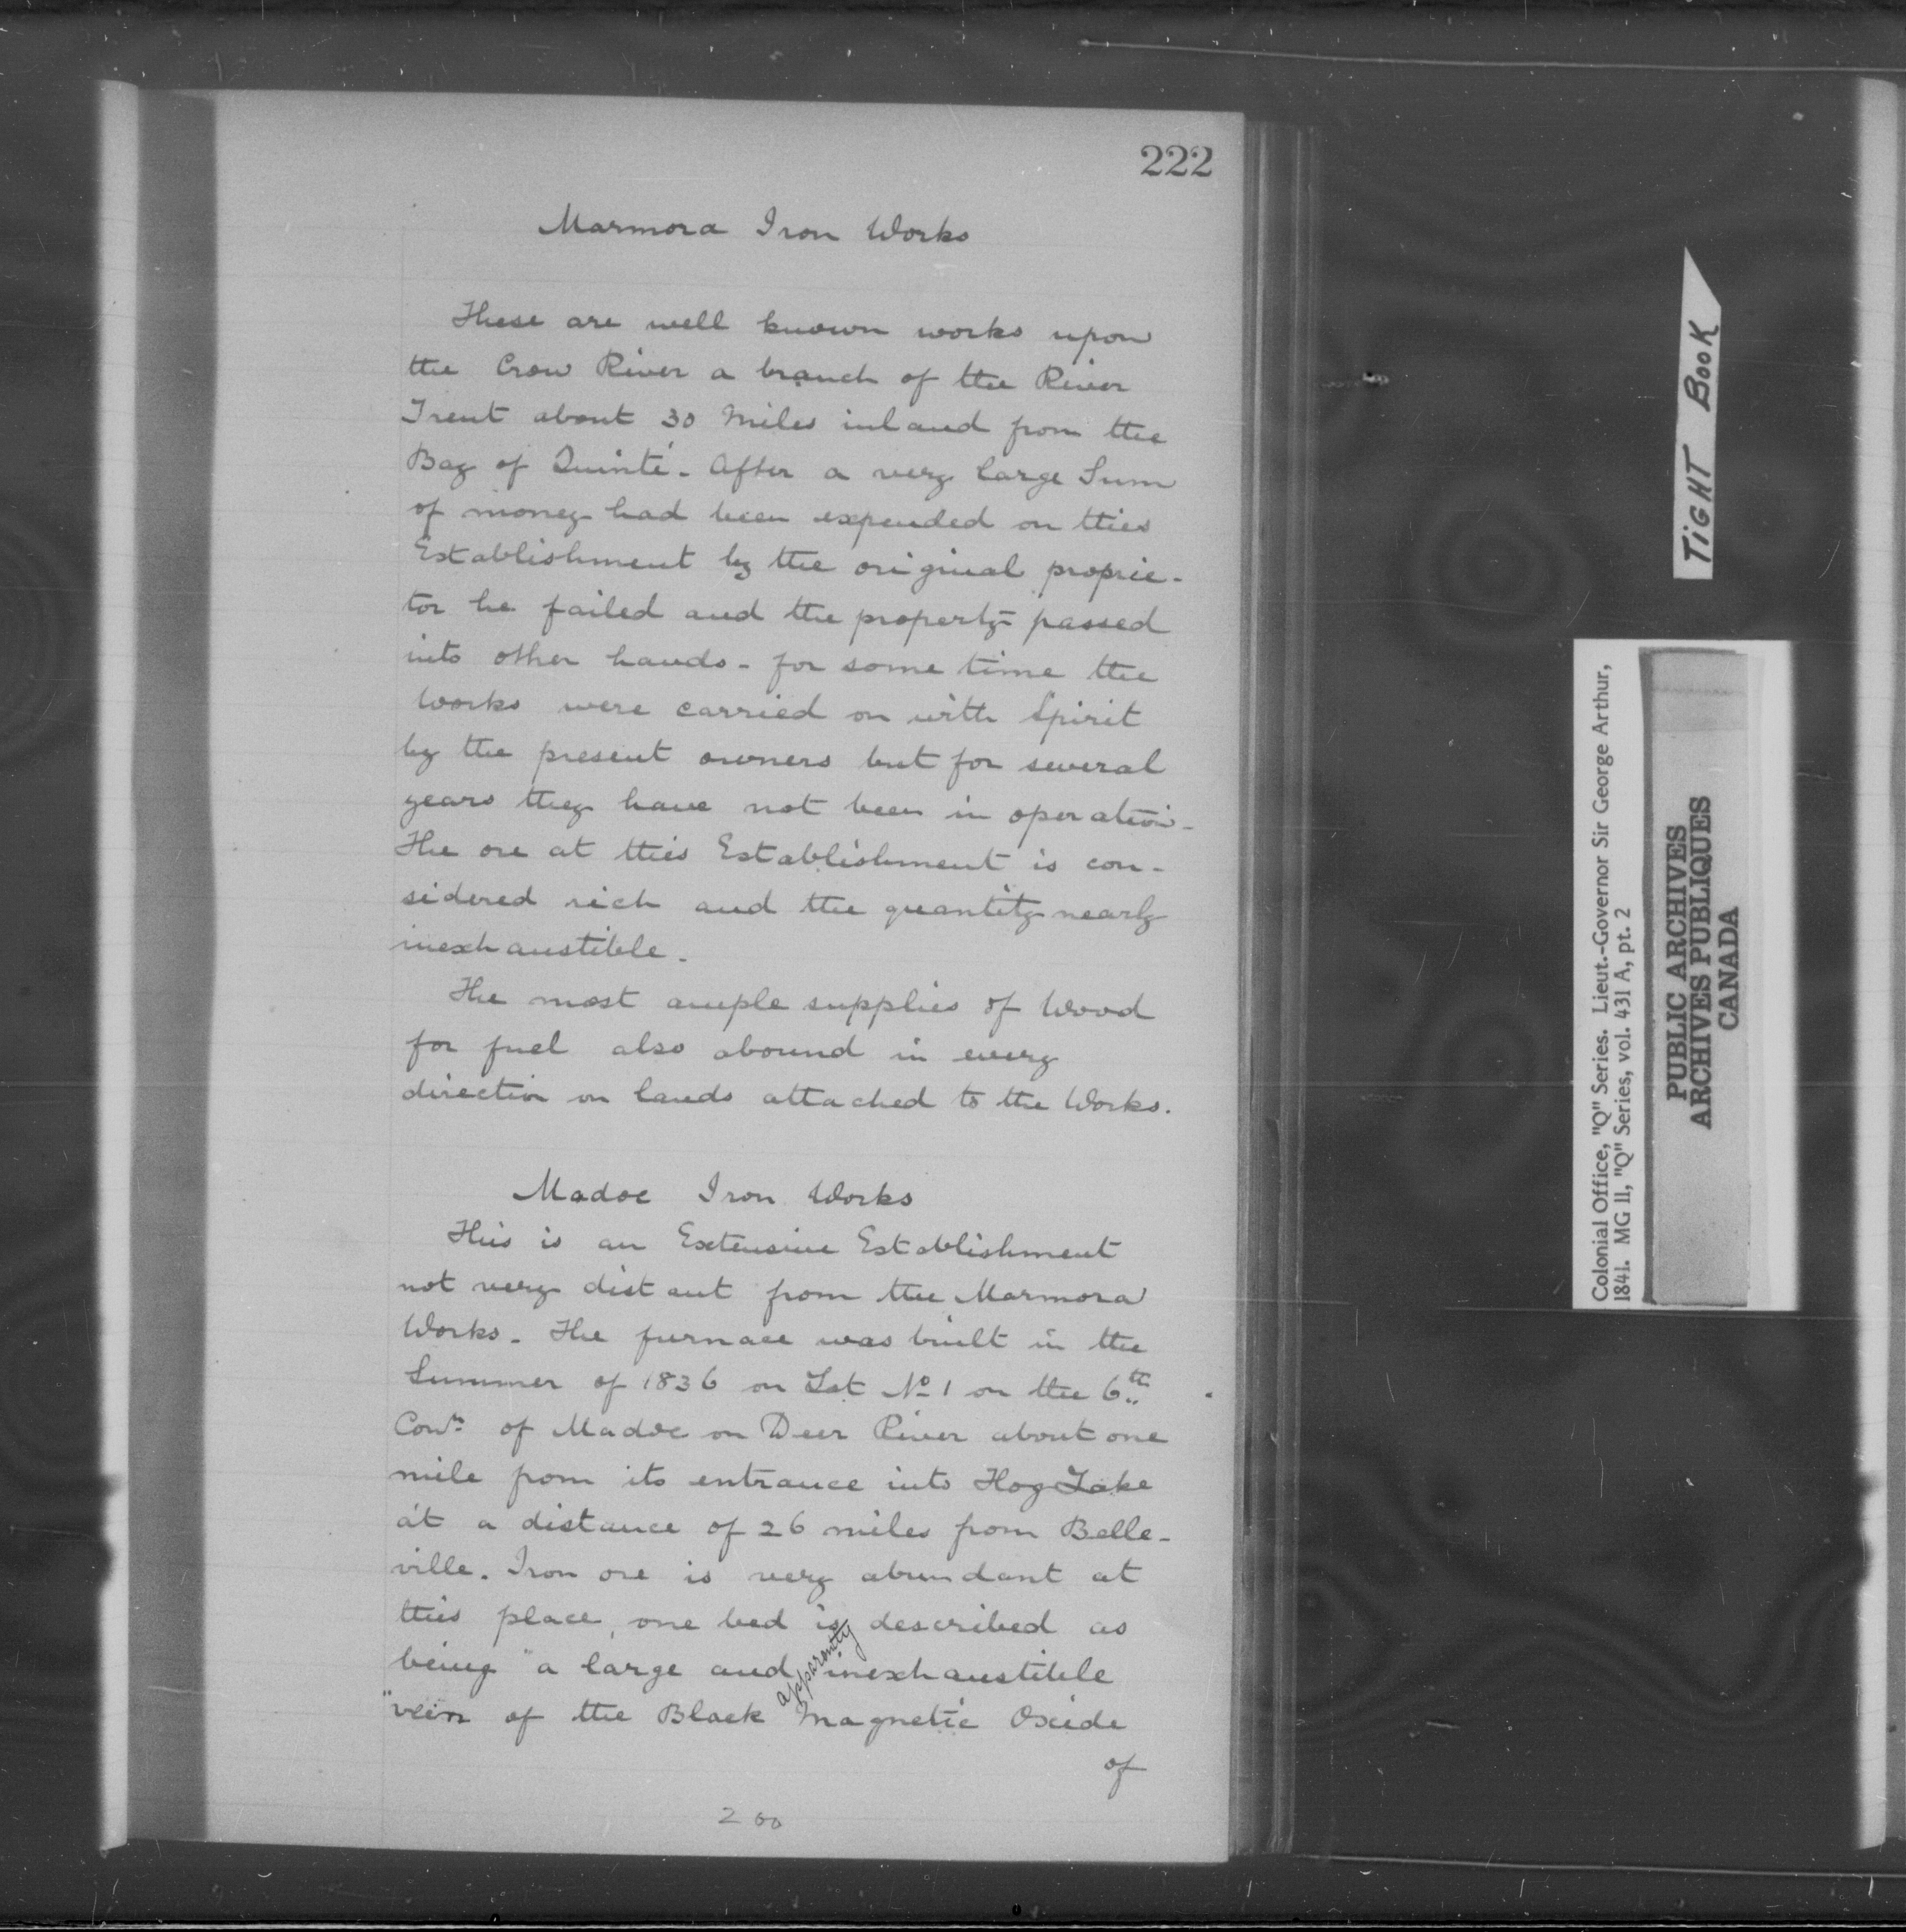 222
Marmora Iron Works
These are well known works upon
the Crow River a branch of the River
Trent about 30 Miles inland from the
Bay of Quinté. After a very large Sum
of money had been expended on this
Establishment by the original proprie-
tor he failed and the property passed
into other hands - for some time the
Works were carried on with Spirit
by the present owners but for several
years they have not been in operation -
The ore at this Establishment is con-
sidered rich and the quantity nearly
inexhaustible.
The most ample supplies of Wood
for fuel also abound in every
direction on lands attached to the Works.
Madoc Iron Works
This is an Extensive Establishment
not very distant from the Marmora
Works. The furnace was built in the
Summer of 1836 on Lot No 1 on the 6th
Conn of Madoc on Deer River about one
mile from its entrance into Hog Lake
at a distance of 26 miles from Belle-
ville. Iron ore is very abundant at
this place, one bed is described as
being "a large and apparently inexhaustible
"vein of the Black Magnetic Oxide
of
200
TIGHT BOOK
Colonial Office, "Q" Series. Lieut.-Governor Sir George Arthur,
1841. MG 11, "Q" Series, vol. 431 A, pt. 2
PUBLIC ARCHIVES
ARCHIVES PUBLIQUES
CANADA